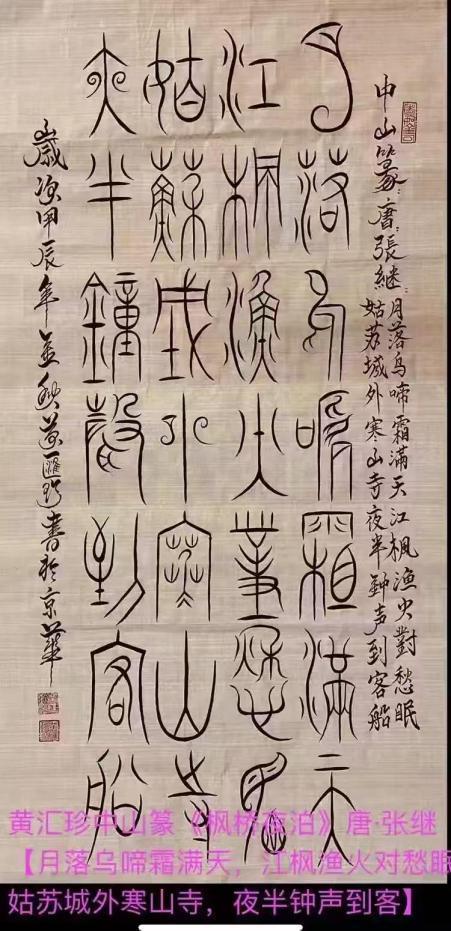 中山篆：唐：張继：月落乌啼霜满天江枫渔火對愁眠
姑苏城外寒山寺夜半钟声到客船
月落烏啼霜滿天
江楓漁火對愁眠
姑蘇城外寒山寺
夜半鐘聲到客船
歲次甲辰年孟秋黄匯珍書於京華
黄汇珍中山篆《枫桥夜泊》唐·张继
【月落乌啼霜满天，江枫渔火对愁眠
姑苏城外寒山寺，夜半钟声到客】